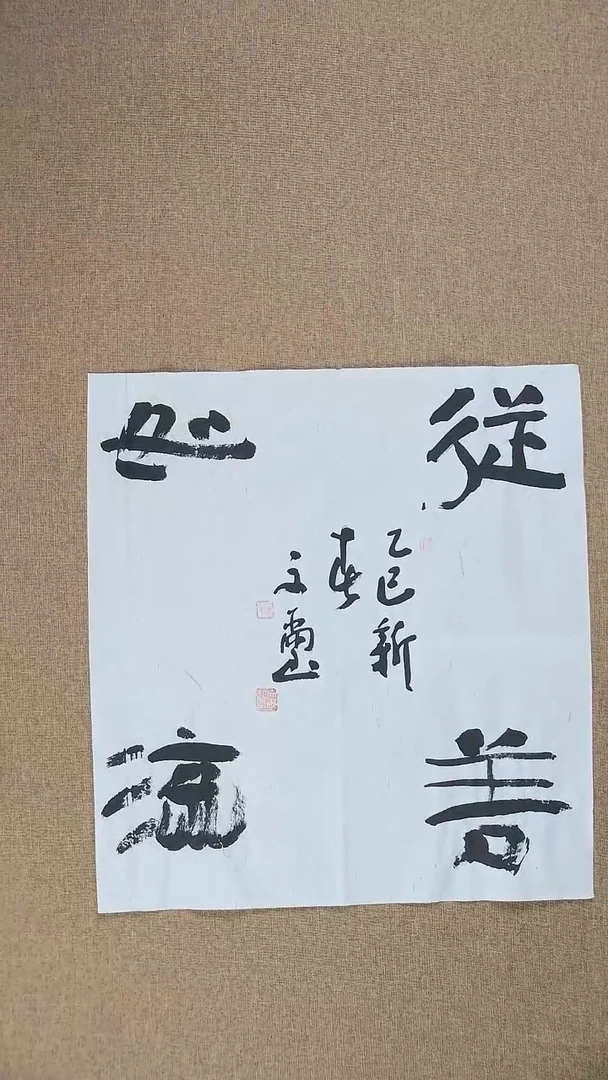 從善
如流
乙巳新
春
文